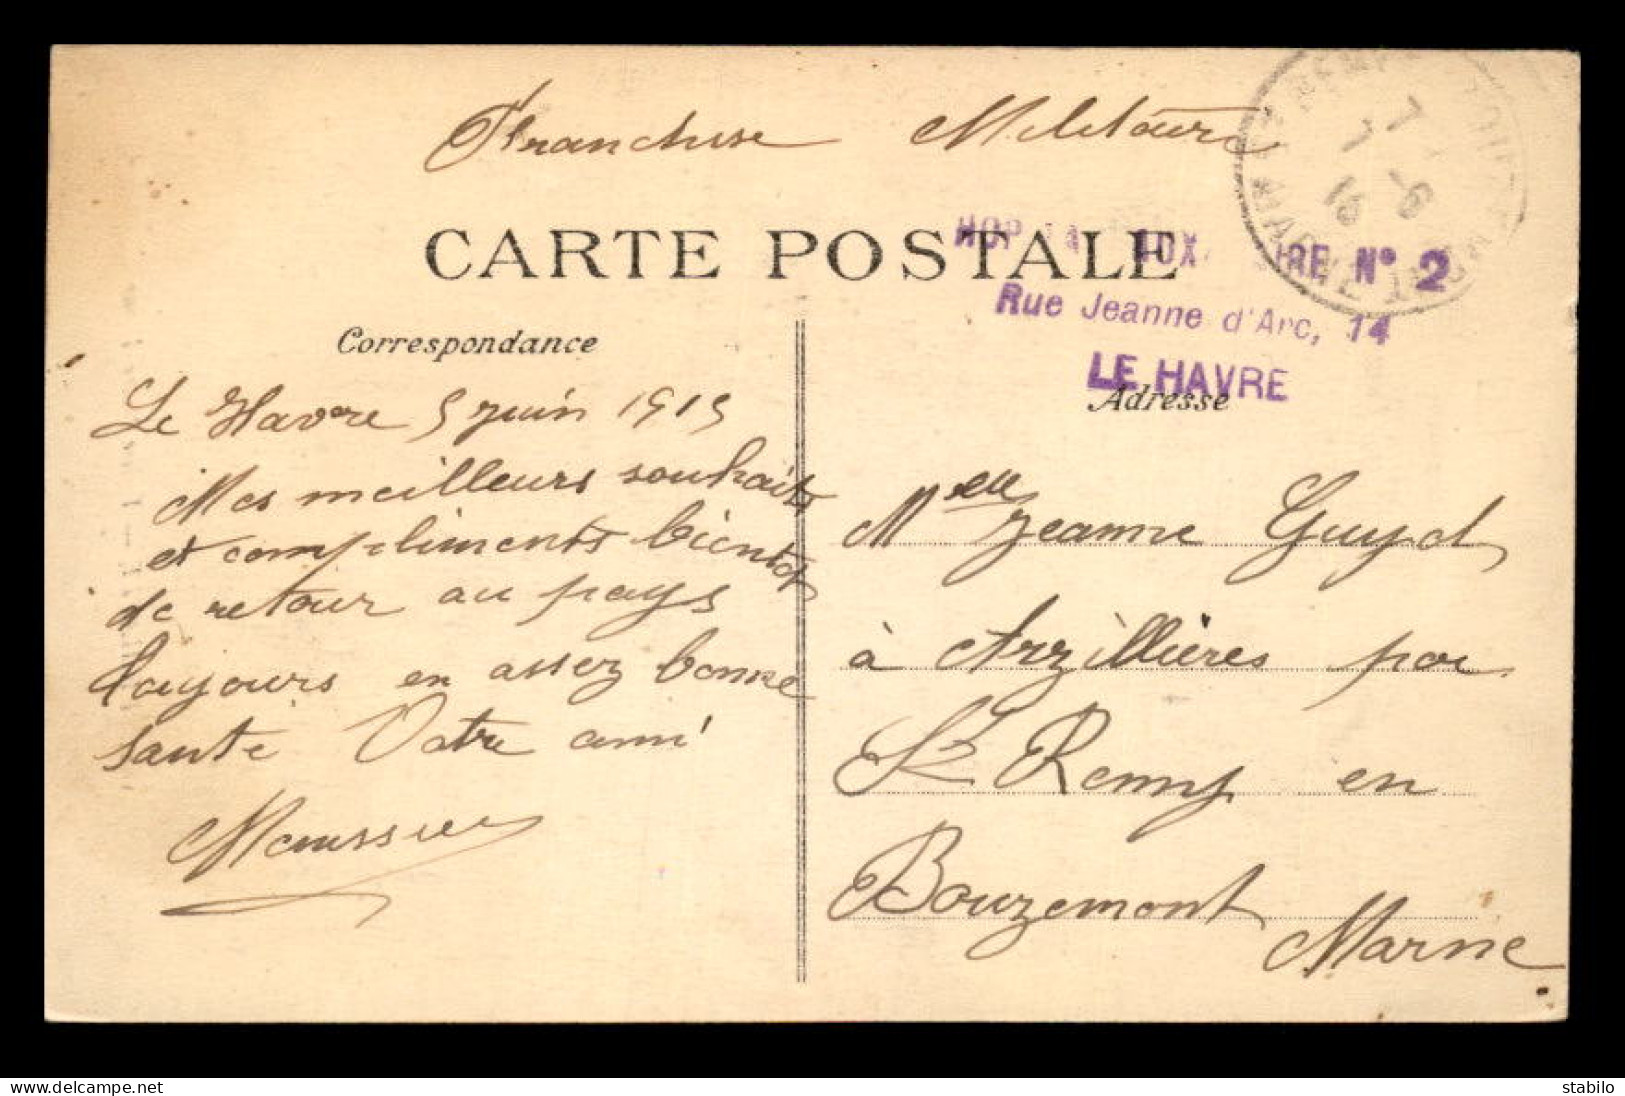 Franchise Militaire
CARTE POSTALE
HOPITAL AUXILIAIRE N° 2
Rue Jeanne d'Arc, 14
LE HAVRE
7 -6
15
MARNE
Correspondance
Le Havre 5 juin 1915
Mes meilleurs souhaits
et compliments bientot
de retour au pays
toujours en assez bonne
santé Votre ami
Adresse
Melle Jeanne Guyot
à Arzillières par
St Remy en
Bouzemont
Marne
delcampe.net
stabilo